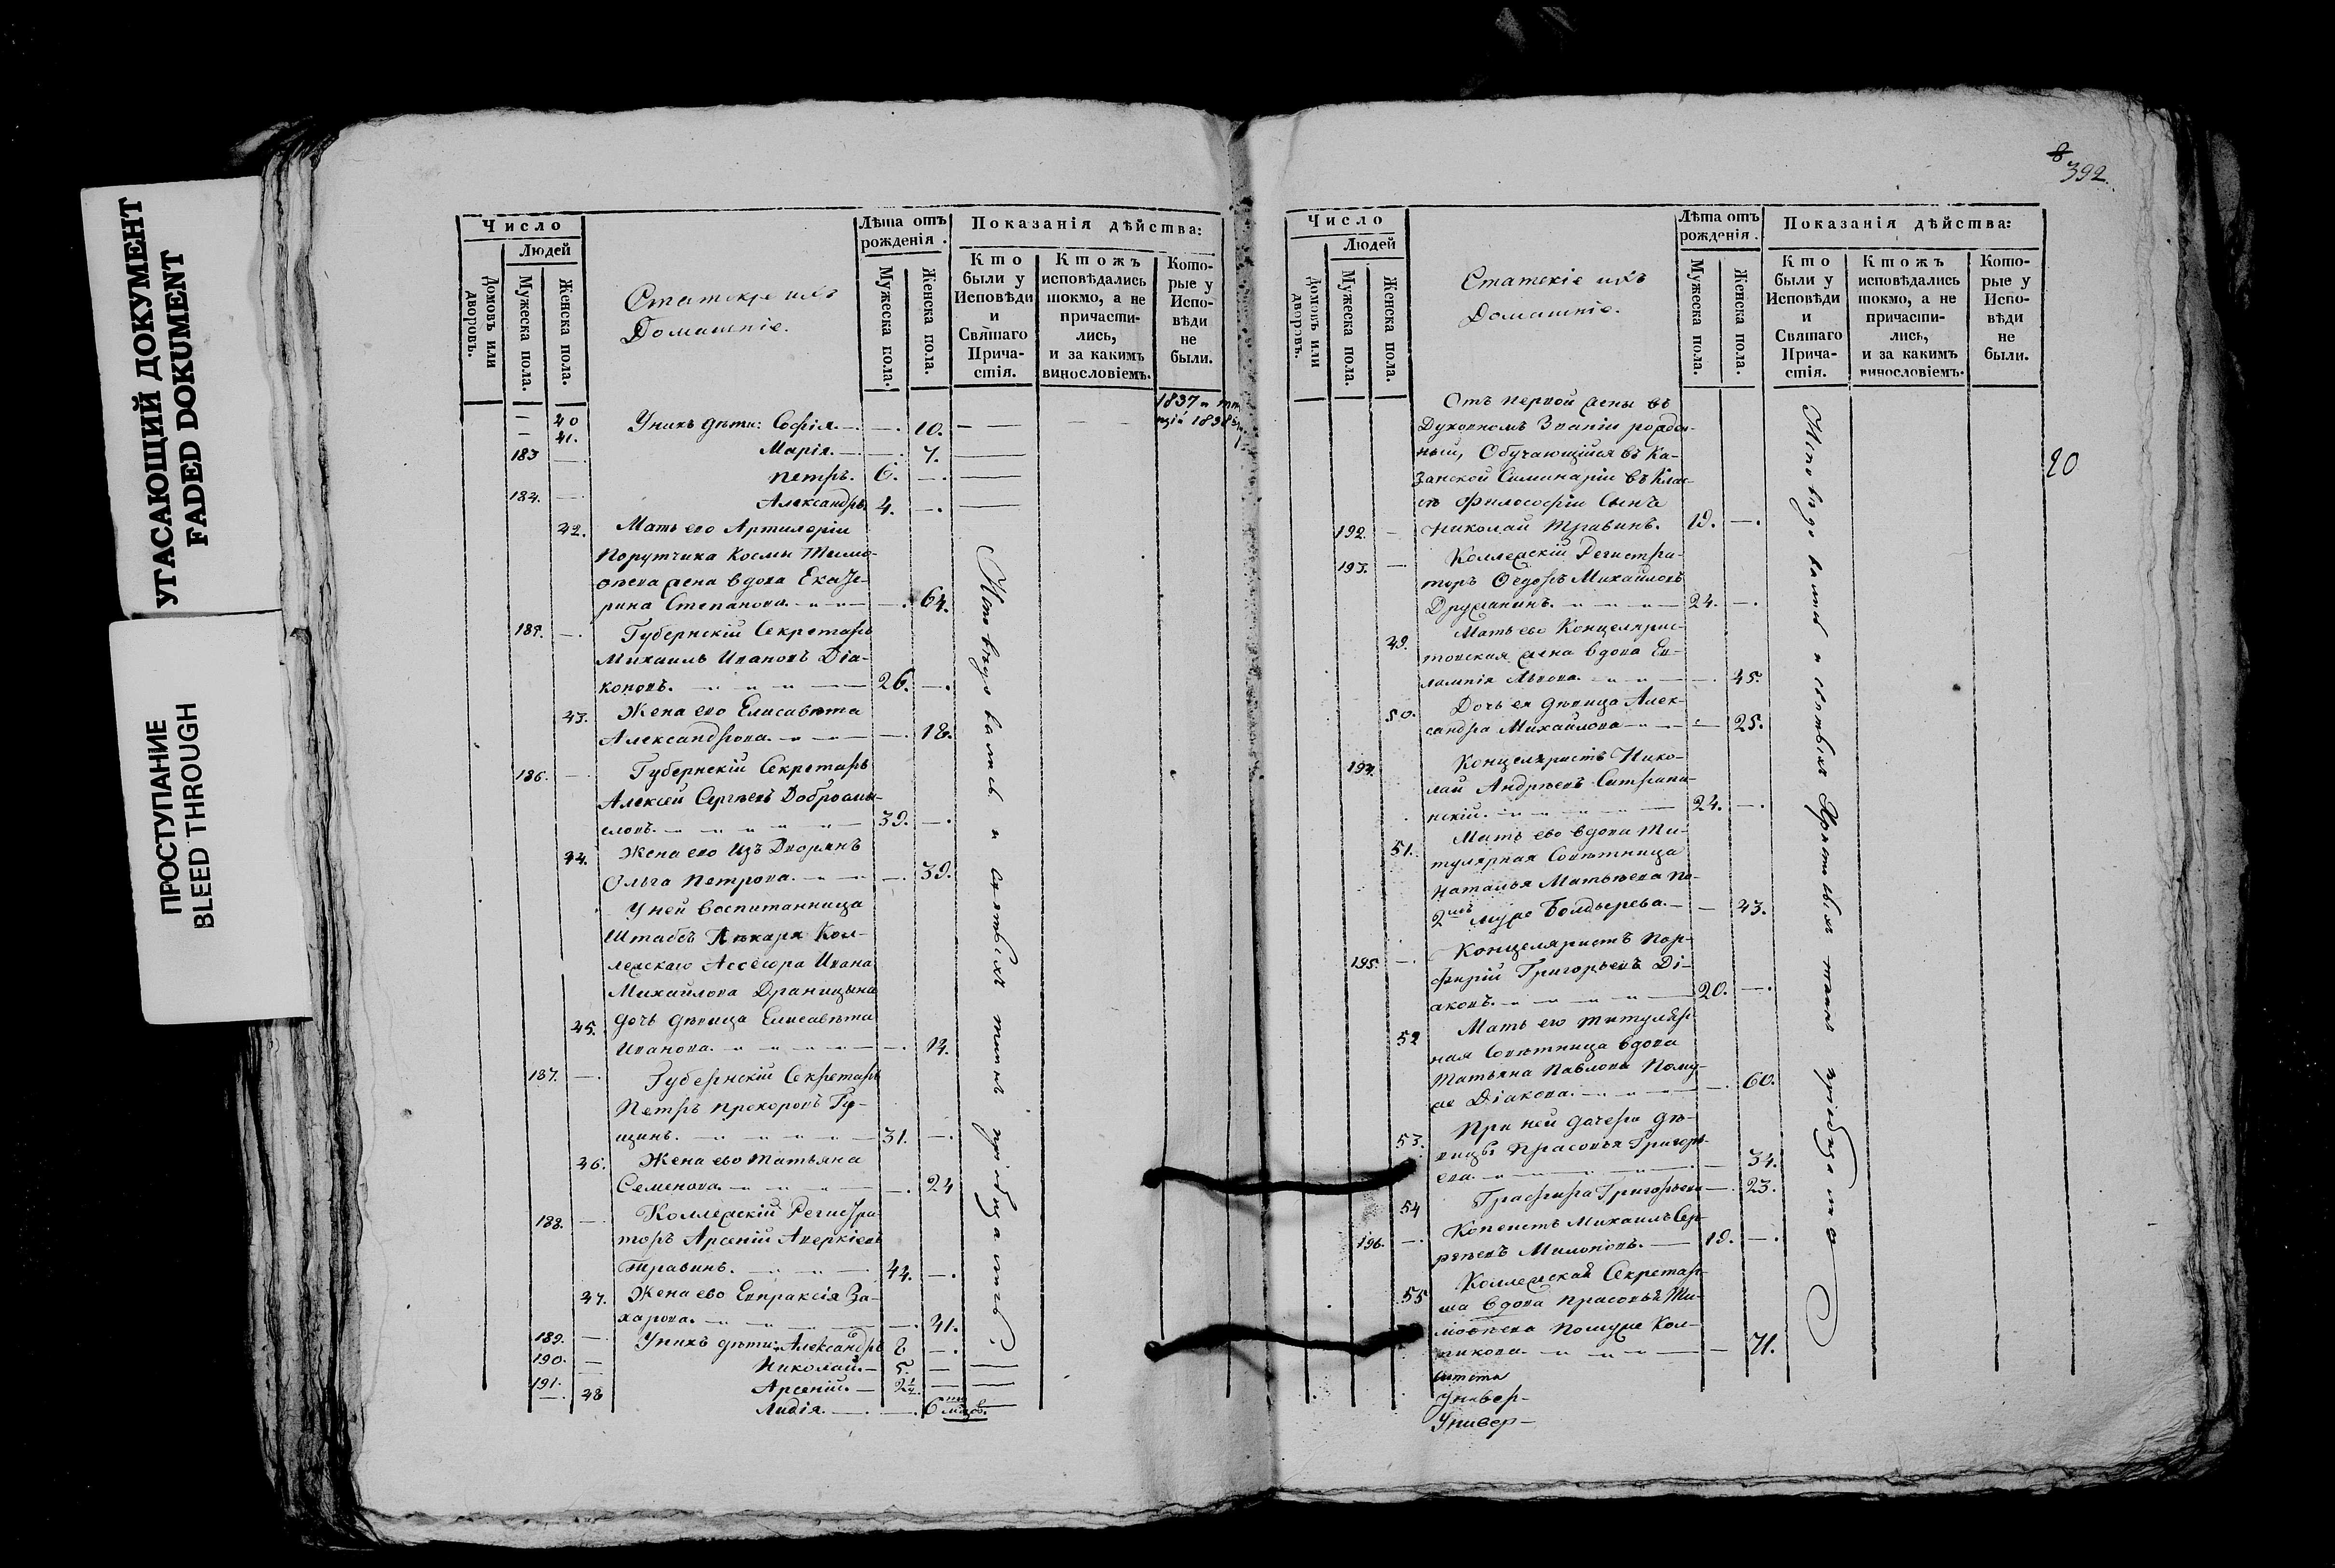 УГАСАЮЩИЙ ДОКУМЕНТ
FADED DOKUMENT
ПРОСТУПАНИЕ
BLEED THROUGH
Число
Людей
Домовъ или дворовъ.
Мужеска пола.
Женска пола.
Статскіе ихъ
Домашніе.
Лѣта отъ
рожденія.
Мужеска пола.
Женска пола.
Показанія дѣйства:
Кто
были у
Исповѣди
и
Святаго
Прича-
стія.
Ктожъ
исповѣдались
токмо, а не
причасти-
лись,
и за какимъ
винословіемъ.
Кото-
рые у
Испо-
вѣди
не
были.
1837
1838
— 40 Унихъ дѣти: Софія. — 10.
— 41. Марія. — 7.
183 — Петръ. 6. —
184. — Александръ 4. —
42. Мать его Артилеріи
Порутчика Космы Тимо-
ѳѣева жена вдова Екате-
рина Степанова. — 64.
185. — Губернскій Секретарь
Михаилъ Ивановъ Діа-
коновъ. 26. —
43. Жена его Елисавѣта
Александрова. — 18.
186. — Губернскій Секретарь
Алексѣй Сергѣевъ Добросмы-
словъ. 39. —
44. Жена его Изъ Дворянъ
Ольга Петрова. — 39.
У ней воспитанница
Штабсъ Лѣкаря Кол-
лежскаго Ассесора Ивана
Михайлова Драницына
45. дочь дѣвица Елисавѣта
Иванова. — 14.
187. — Губернскій Секретарь
Петръ Прохоровъ Гу-
щинъ. 31. —
46. Жена его Татьяна
Семенова. — 24
188. — Коллежскій Регистра-
торъ Арсеній Аверкіевъ
Травинъ. 44. —
47. Жена его Евпраксія За-
харова. — 41.
189. — Унихъ дѣти: Александръ 8 —
190. — Николай. — 5. —
191. — Арсеній. — 2½ —
— 48 Лидія. — 6 мѣсов.
Исповѣдовались и святыхъ таинъ пріобщались
8
392.
20
Число
Людей
Домовъ или дворовъ.
Мужеска пола.
Женска пола.
Статскіе ихъ
Домашніе.
Лѣта отъ
рожденія.
Мужеска пола.
Женска пола.
Показанія дѣйства:
Кто
были у
Исповѣди
и
Святаго
Прича-
стія.
Ктожъ
исповѣдались
токмо, а не
причасти-
лись,
и за какимъ
винословіемъ.
Кото-
рые у
Испо-
вѣди
не
были.
Отъ первой жены въ
Духовномъ Званіи рожден-
ный, Обучающійся въ Ка-
занской Семинаріи въ Клас-
сѣ Философіи Сынъ
192. — Николай Травинъ. 19. —
193. — Коллежскій Регистра-
торъ Ѳедоръ Михайловъ
Дружининъ. 24. —
49. Мать его Концелярис-
товская жена вдова Ев-
лампія Львова. — 45.
50. Дочь ея дѣвица Алек-
сандра Михайлова — 25.
194. Концеляристъ Нико-
лай Андрѣевъ
24. —
51. Мать его вдова Ти-
тулярная Совѣтница
Наталья Матвѣева по
2мъ мужѣ Болдырева. — 43.
195. — Концеляристъ Пор-
фирій Григорьевъ Ді-
аковъ. 20. —
52 Мать его титуляр
ная Совѣтница вдова
Татьяна Павлова Пому-
же Діакова. — 60.
53. При ней дочери дѣ-
вицы Прасковья Григорь-
ева. — 34.
54 Графира Григорьева — 23.
196. — Копеистъ Михаилъ Сер-
гѣевъ Милоновъ. — 19. —
55 Коллежская Секретар-
ша вдова Прасковья Ти-
моѳѣева Помуже Кол-
пикова. — 71.
Универ-
Универ-
Исповѣдовались и святыхъ Христовыхъ таинъ пріобща